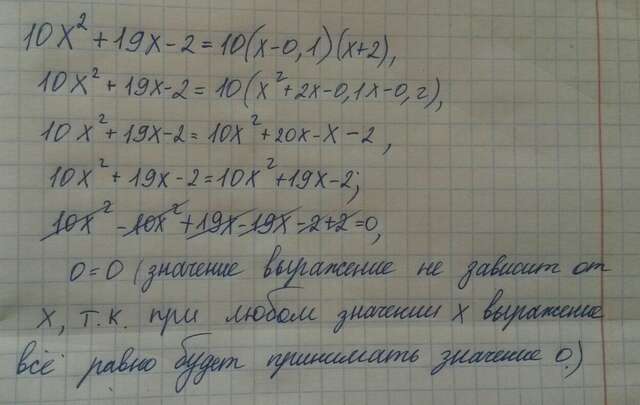 10x² + 19x - 2 = 10(x - 0,1)(x + 2),
10x² + 19x - 2 = 10(x² + 2x - 0,1x - 0,2),
10x² + 19x - 2 = 10x² + 20x - x - 2,
10x² + 19x - 2 = 10x² + 19x - 2;
10x² - 10x² + 19x - 19x - 2 + 2 = 0,
0 = 0 (значение выражение не зависит от
х, т.к. при любом значении х выражение
всё равно будет принимать значение 0.)